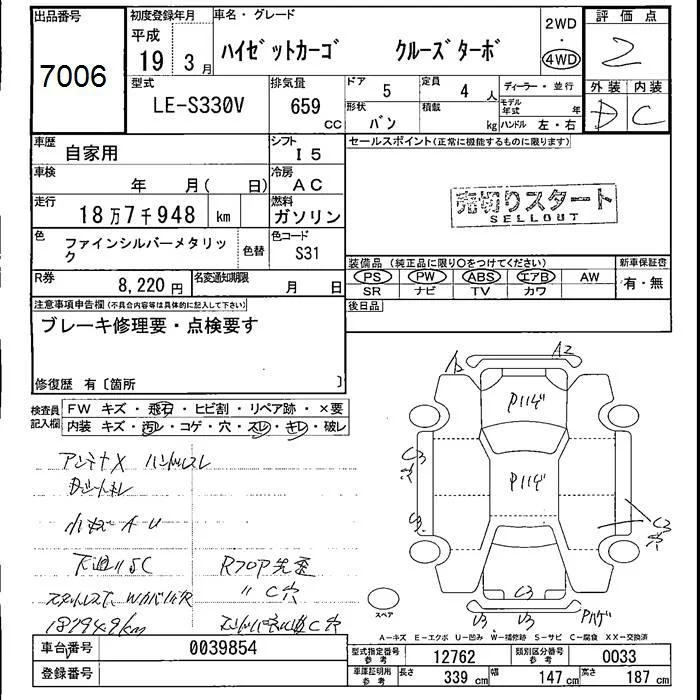 出品番号 初度登録年月 車名・グレード 評価点
7006 平成 19 3月 ハイゼットカーゴ クルーズターボ 2WD・4WD 2
型式 排気量 ドア 5 定員 4人 ディーラー・並行 外装 内装
LE-S330V 659 CC 形状 バン 積載 kg モデル年式 年 ハンドル 左・右 D C
車歴 自家用 シフト I5 セールスポイント(正常に機能するものに限ります)
車検 年 月( 日) 冷房 AC
走行 18万7千948 km 燃料 ガソリン 売切りスタート
SELLOUT
色 ファインシルバーメタリック 色替 色コード S31
装備品(純正品に限り〇をつけてください) 新車保証書
PS PW ABS エアB AW 有・無
SR ナビ TV カワ
R券 8,220円 名変通知期限 月 日
後日品
注意事項申告欄(不具合内容等は具体的に記入して下さい)
ブレーキ修理要・点検要す
修復歴 有〔箇所 〕
検査員記入欄 FW キズ・飛石・ヒビ割・リペア跡・×要
内装 キズ・汚レ・コゲ・穴・スレ・キレ・破レ
アンテナX ハンドルスレ
小キズ A U
下廻りSC
187949km
R
C穴
C穴
A2
A2
C3
C3
C3
U3 U3
スペア
A-キズ E-エクボ U-凹み W-補修跡 S-サビ C-腐食 XX-交換済
車台番号 0039854
登録番号
型式指定番号 参考 12762 類別区分番号 参考 0033
車庫証明用 参考 長さ 339 cm 幅 147 cm 高さ 187 cm